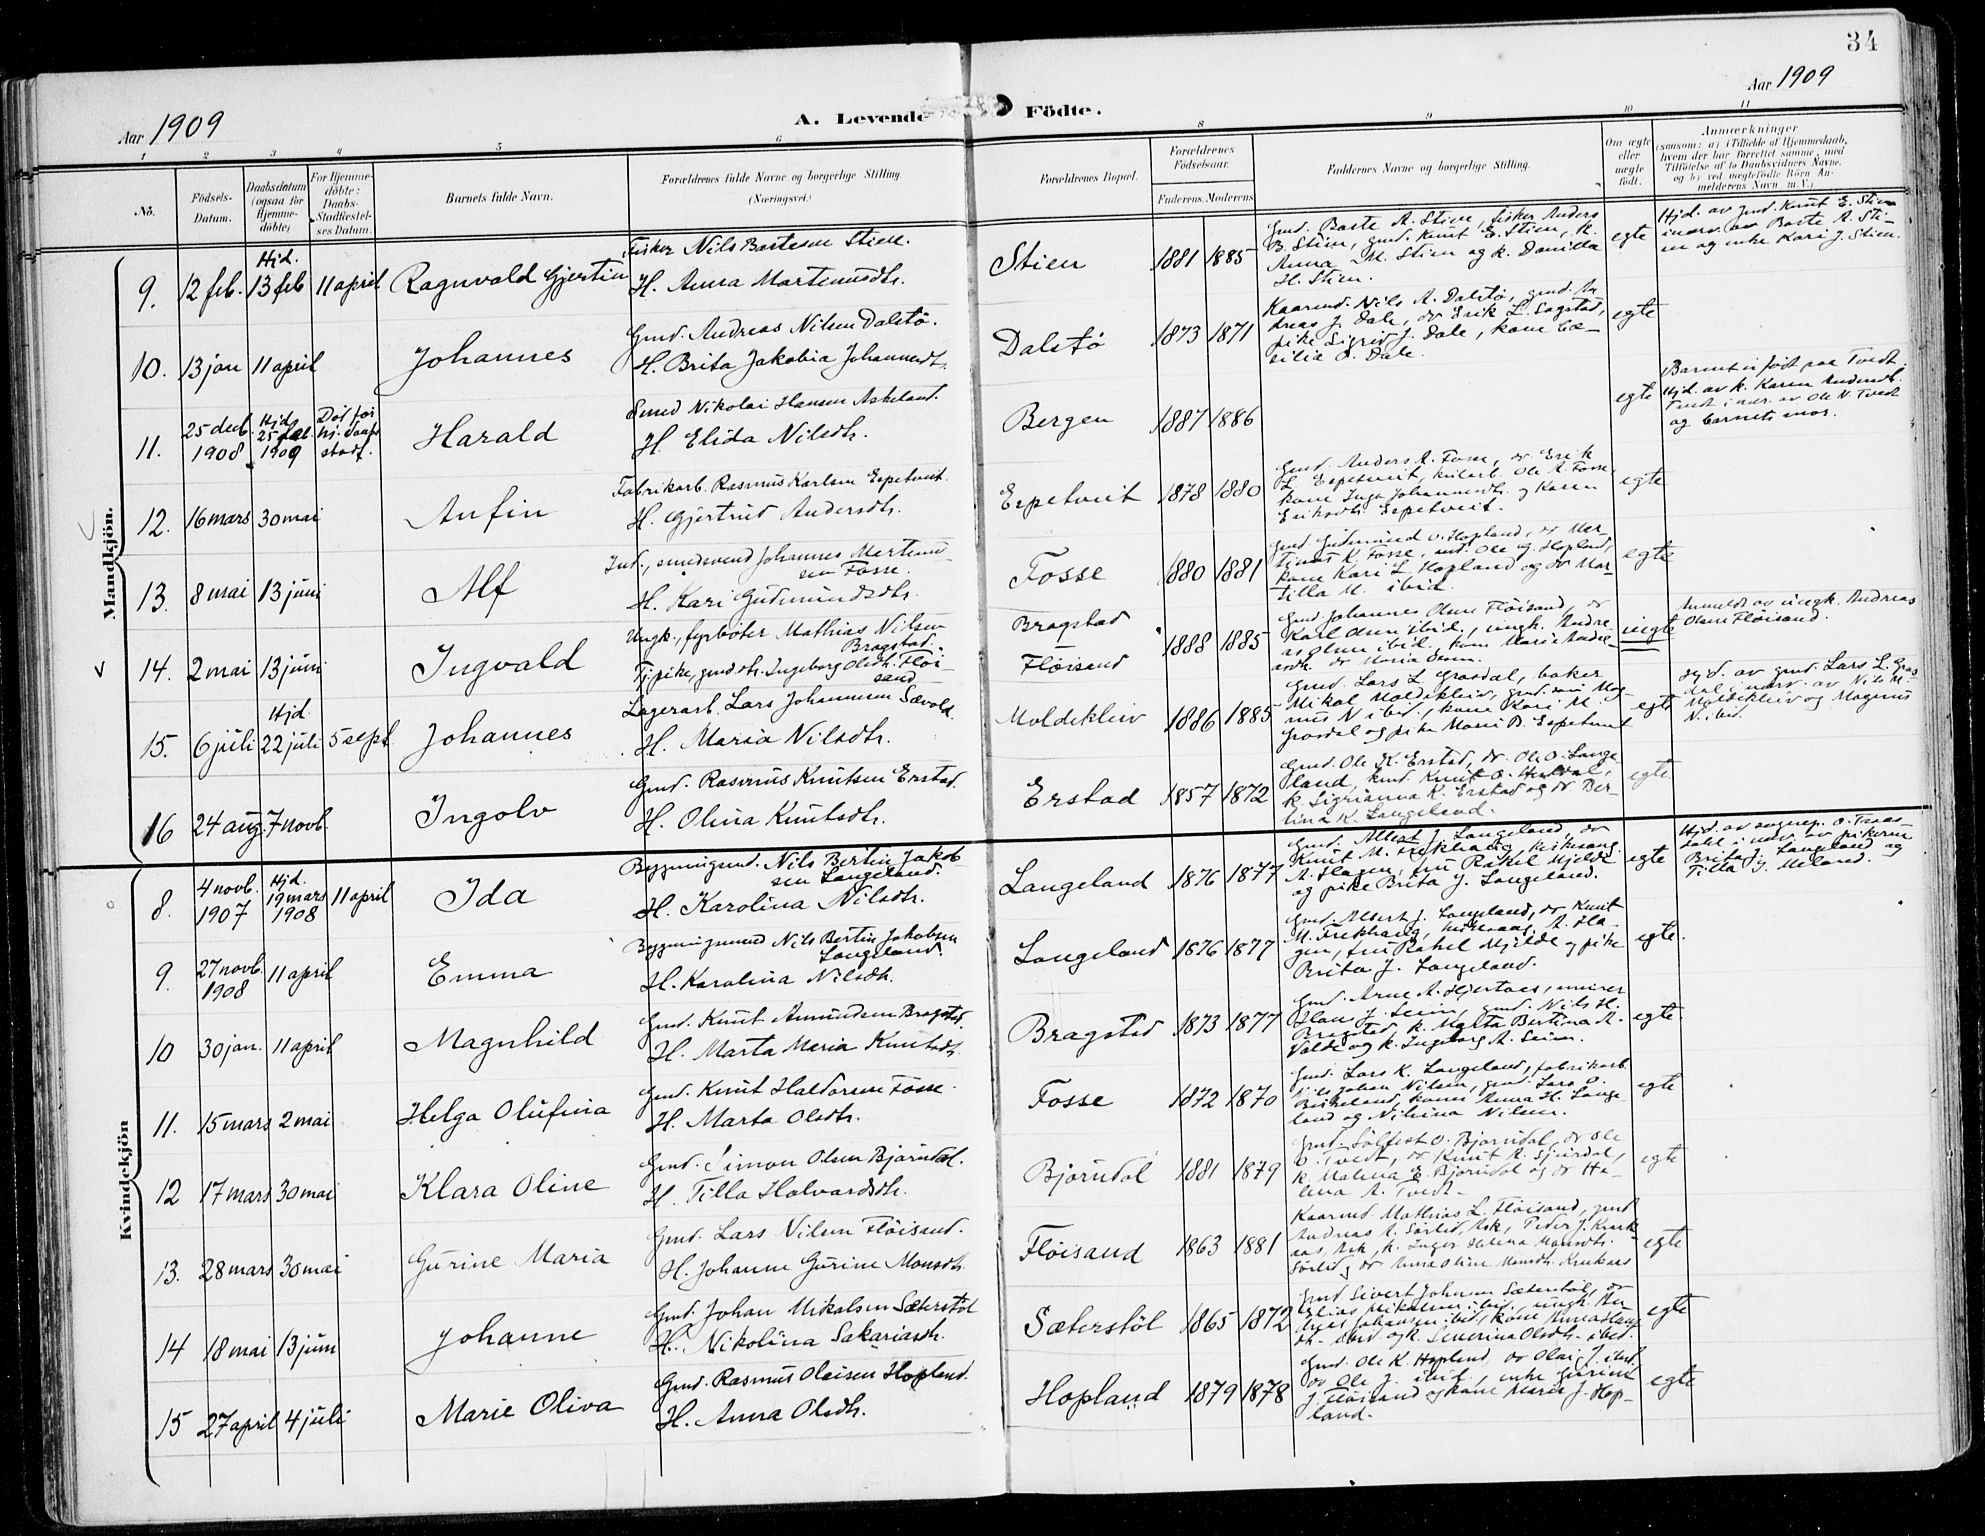 34
Aar 1909
Aar 1909
A. Levende Födte.
1 2 3 4 5 6 8 9 10 11
No.
Födsels-Datum.
Daabsdatum (ogsaa for Hjemme-döbte)
For Hjemme-döbte: Daabs-Stadfæstel-ses Datum.
Barnets fulde Navn.
Forældrenes fulde Navne og borgerlige Stilling
(Næringsvei.)
Forældrenes Bopæl.
Forældrenes Födselsaar.
Faderens. Moderens
Faddernes Navne og borgerlige Stilling.
Om ægte eller uægte födt.
Anmærkninger
(saasom: a) i Tilfælde af Hjemmedaab, hvem der har forrettet samme, med Tilföielse af to Daabsvidners Navne. og b) ved uægtefödte Börn An-melderens Navn m. V.)
Mandkjön.
9. 12 feb. Hjd. 13 feb 11 april Ragnvald Gjertin
Fisker Nils Bastesen Stien.
H. Anna Martemusdtr.
Stien 1881 1885
Gmd. Baste A. Stien, fisker Anders
B. Stien, gmd. Knut E. Stien, k.
Anna M. Stien og k. Danilla
H. Stien.
egte
Hjd. av gmd. Knut E. Stien
i nærv. av Baste A. Sti-
en og enke Kari J. Stien.
10. 13 jan 11 april Johannes
Gmd. Andreas Nilsen Dalstø.
H. Brita Jakobia Johannesdtr.
Dalstø 1873 1871
Kaarmd. Nils A. Dalstø, gmd. An
dreas J. Dale, dr Erik L. Sagstad,
pike Sigrid J. Dale, kone Cæ-
silie O. Dale.
egte
11. 25 decb 1908 Hjd 1909 Død før Harald
Smed Nikolai Hansen Askeland.
H. Elida Nilsdtr.
Bergen 1887 1886
egte
Barnet er født paa Tvedt.
Hjd. av k. Karen Andersdtr.
Tvedt i nær. av Ole N. Tvedt
og barnets mor.
12. 16 mars 30 mai Anfin
Fabrikarb. Rasmus Karlsen Espetveit.
H. Gjertrud Andersdtr.
Espetveit 1878 1880
Gmd. Anders A. Fosse, dr Erik
L. Espetveit, Ole A. Fosse
kone Inga Johannesdtr. og Karen
Eriksdtr. Espetveit.
egte
13. 8 mai 13 juni Alf
Ind., smedsvend Johannes Martinus-
sen Fosse.
H. Kari Gudmundsdtr.
Fosse 1880 1881
Gmd. Gudmund O. Hopland, dr Mar
tinus K. Fosse, Ole G. Hopland,
kone Kari L. Hopland og dr Mar-
tilla M. ibid.
egte
14. 2 mai 13 juni Ingvald
Ungk., fyrbøter Mathias Nilsen
Bragstad.
Tj.pike, gmdsdtr. Ingeborg Olsdtr. Fløi-
sand
Bragstad
Fløisand 1888 1885
Gmd Johannes Olsen Fløisand, dr
Karl Olsen ibid., ungk. Andre
as Olsen ibid, kone Marie Andre-
asdtr. dr Maria Olsen.
uegte
Anmeldt av ungk. Andreas
Olsen Fløisand.
15. 6 juli Hjd. 22 juli 5 sept Johannes
Lagerarb. Lars Johannesen Sævold.
H. Maria Nilsdtr.
Moldekleiv 1886 1885
Gmd. Lars L. Grasdal, baker
Mikal Moldekleiv, gmd. søn Mag-
nus N. ibid., kone Kari M.
Grasdal og pike Marie B. Espetveit
egte
Hjd. av gmd. Lars L. Gras
dal i nærv. av Nils M.
Moldekleiv og Magnus
N. ibid.
16 24 aug. 7 novb. Ingolv
Gmd. Rasmus Knutsen Erstad.
H. Olina Knutsdtr.
Erstad 1857 1872
Gmd. Ole K. Erstad, dr. Ole O. Lange
land, Knut O.
k. Sigrianna K. Erstad og dr Ber-
tina K. Langeland.
egte
Kvindekjön
8. 4 novb. 1907 Hjd. 19 mars 1908 11 april Ida
Bygningsmd. Nils Bertin Jakob
sen Langeland.
H. Karolina Nilsdtr.
Langeland 1876 1877
Gmd. Albert J. Langeland, dr
Knut M. Frekhaug, kirkesang.
A. Hagen, fru Rakel Mjelde
og pike Brita J. Langeland.
egte
Hjd. av sognep. O. Traas-
dahl i nærv. av pikerne
Brita J. Langeland og
Tilla J. Meland.
9. 27 novb. 1908 11 april Emma
Bygningsmend Nils Bertin Jakobsen
Langeland.
H. Karolina Nilsdtr.
Langeland 1876 1877
Gmd. Albert J. Langeland, dr Knut
M. Frekhaug, kirkesang. A. Ha-
gen, fru Rakel Mjelde og pike
Brita J. Langeland.
egte.
10 30 jan. 11 april Magnhild
Gmd. Knut Amundsen Bragstad.
H. Marta Maria Knutsdtr.
Bragstad 1873 1877
Gmd. Arne A. Hjertaas, murer
Hans J. Seim, gmd. Nils H.
Bragstad, k. Marta Bertina A.
Valde og k. Ingeborg A. Seim.
egte.
11. 15 mars 2 mai Helga Olufina
Gmd. Knut Haldorsen Fosse.
H. Marta Olsdtr.
Fosse 1872 1870
Gmd. Lars K. Langeland, fabrikarb.
Nils Johan Nilsen, gmd. Lars O.
Birkeland, kone Anna H. Lange
land og Nilsina Nilsen.
egte
12 17 mars 30 mai Klara Oline
Gmd. Simon Olsen Bjørndal.
H. Tilla Halvardsdtr.
Bjørndal 1881 1879
Gmd. Sølfest O. Bjørndal, dr Ole
O. Tvedt, dr Knut A. Bjørndal,
k. Malena E. Bjørndal og dr Ha-
lina A. Tvedt.
egte
13. 28 mars 30 mai Gurine Maria
Gmd. Lars Nilsen Fløisand.
H. Johanne Gurine Monsdtr.
Fløisand 1863 1881
Kaarmd. Mathias L. Fløisand, gmd
Andreas A. Sørlid, Ask, Peder J. Kruck
aas, Ask, k. Inger Helena Monsdtr.
Sørlid og dr Anna Oline Monsdtr.
egte
14 18 mai 13 juni Johanne
Gmd. Johan Mikalsen Sæterstøl
H. Nikolina Sakariasdtr.
Sæterstøl 1865 1872
Gmd Sivert Johnsen Sæterstøl, dr
Elias Mikalsen ibid., ungk. An-
dreas Johansen ibid, kone Anna
og k. Severina Olsdtr. ibid.
egte
15 27 april 4 juli Marie Oliva
Gmd. Rasmus Olaisen Hopland.
H. Anna Olsdtr.
Hopland 1879 1878
Gmd. Ole K. Hopland, dr Olai J. ibid,
dr Ole J. ibid., enke Gurine
J. Fløisand og kone Maria J. Hop-
land.
egte